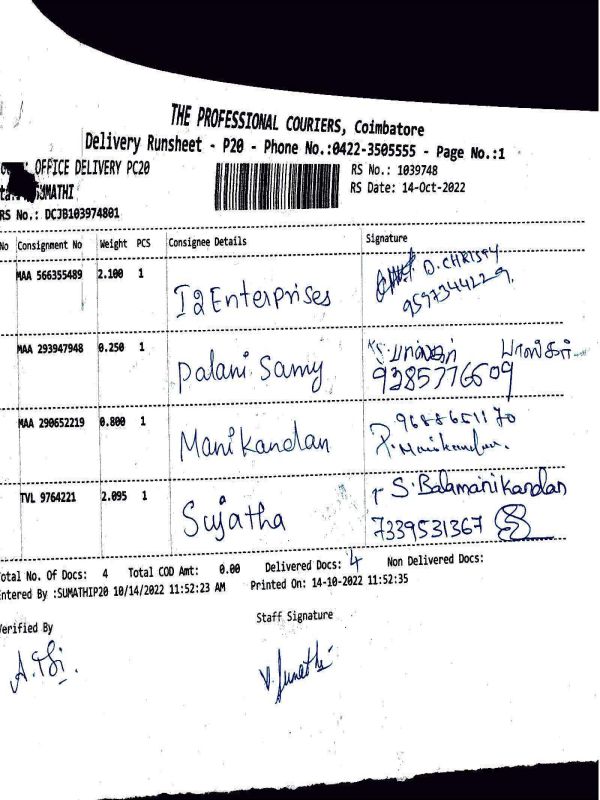 THE PROFESSIONAL COURIERS, Coimbatore
Delivery Runsheet - P20 - Phone No.:0422-3505555 - Page No.:1
OFFICE DELIVERY PC20
RS No.: 1039748
SUMATHI
RS Date: 14-Oct-2022
RS No.: DCJB103974801
No Consignment No Weight PCS Consignee Details Signature
MAA 566355489 2.100 1 I2 Enterprises D. CHRISTY
9597344229.
MAA 293947948 0.250 1 Palani Samy
9385776609
MAA 290652219 0.800 1 Manikandan 9688651170
P. Manikandan.
TVL 9764221 2.095 1 Sujatha S. Balamanikandan
7339531367
otal No. Of Docs: 4 Total COD Amt: 0.00 Delivered Docs: 4 Non Delivered Docs:
ntered By :SUMATHIP20 10/14/2022 11:52:23 AM Printed On: 14-10-2022 11:52:35
erified By Staff Signature
V. Sumathi